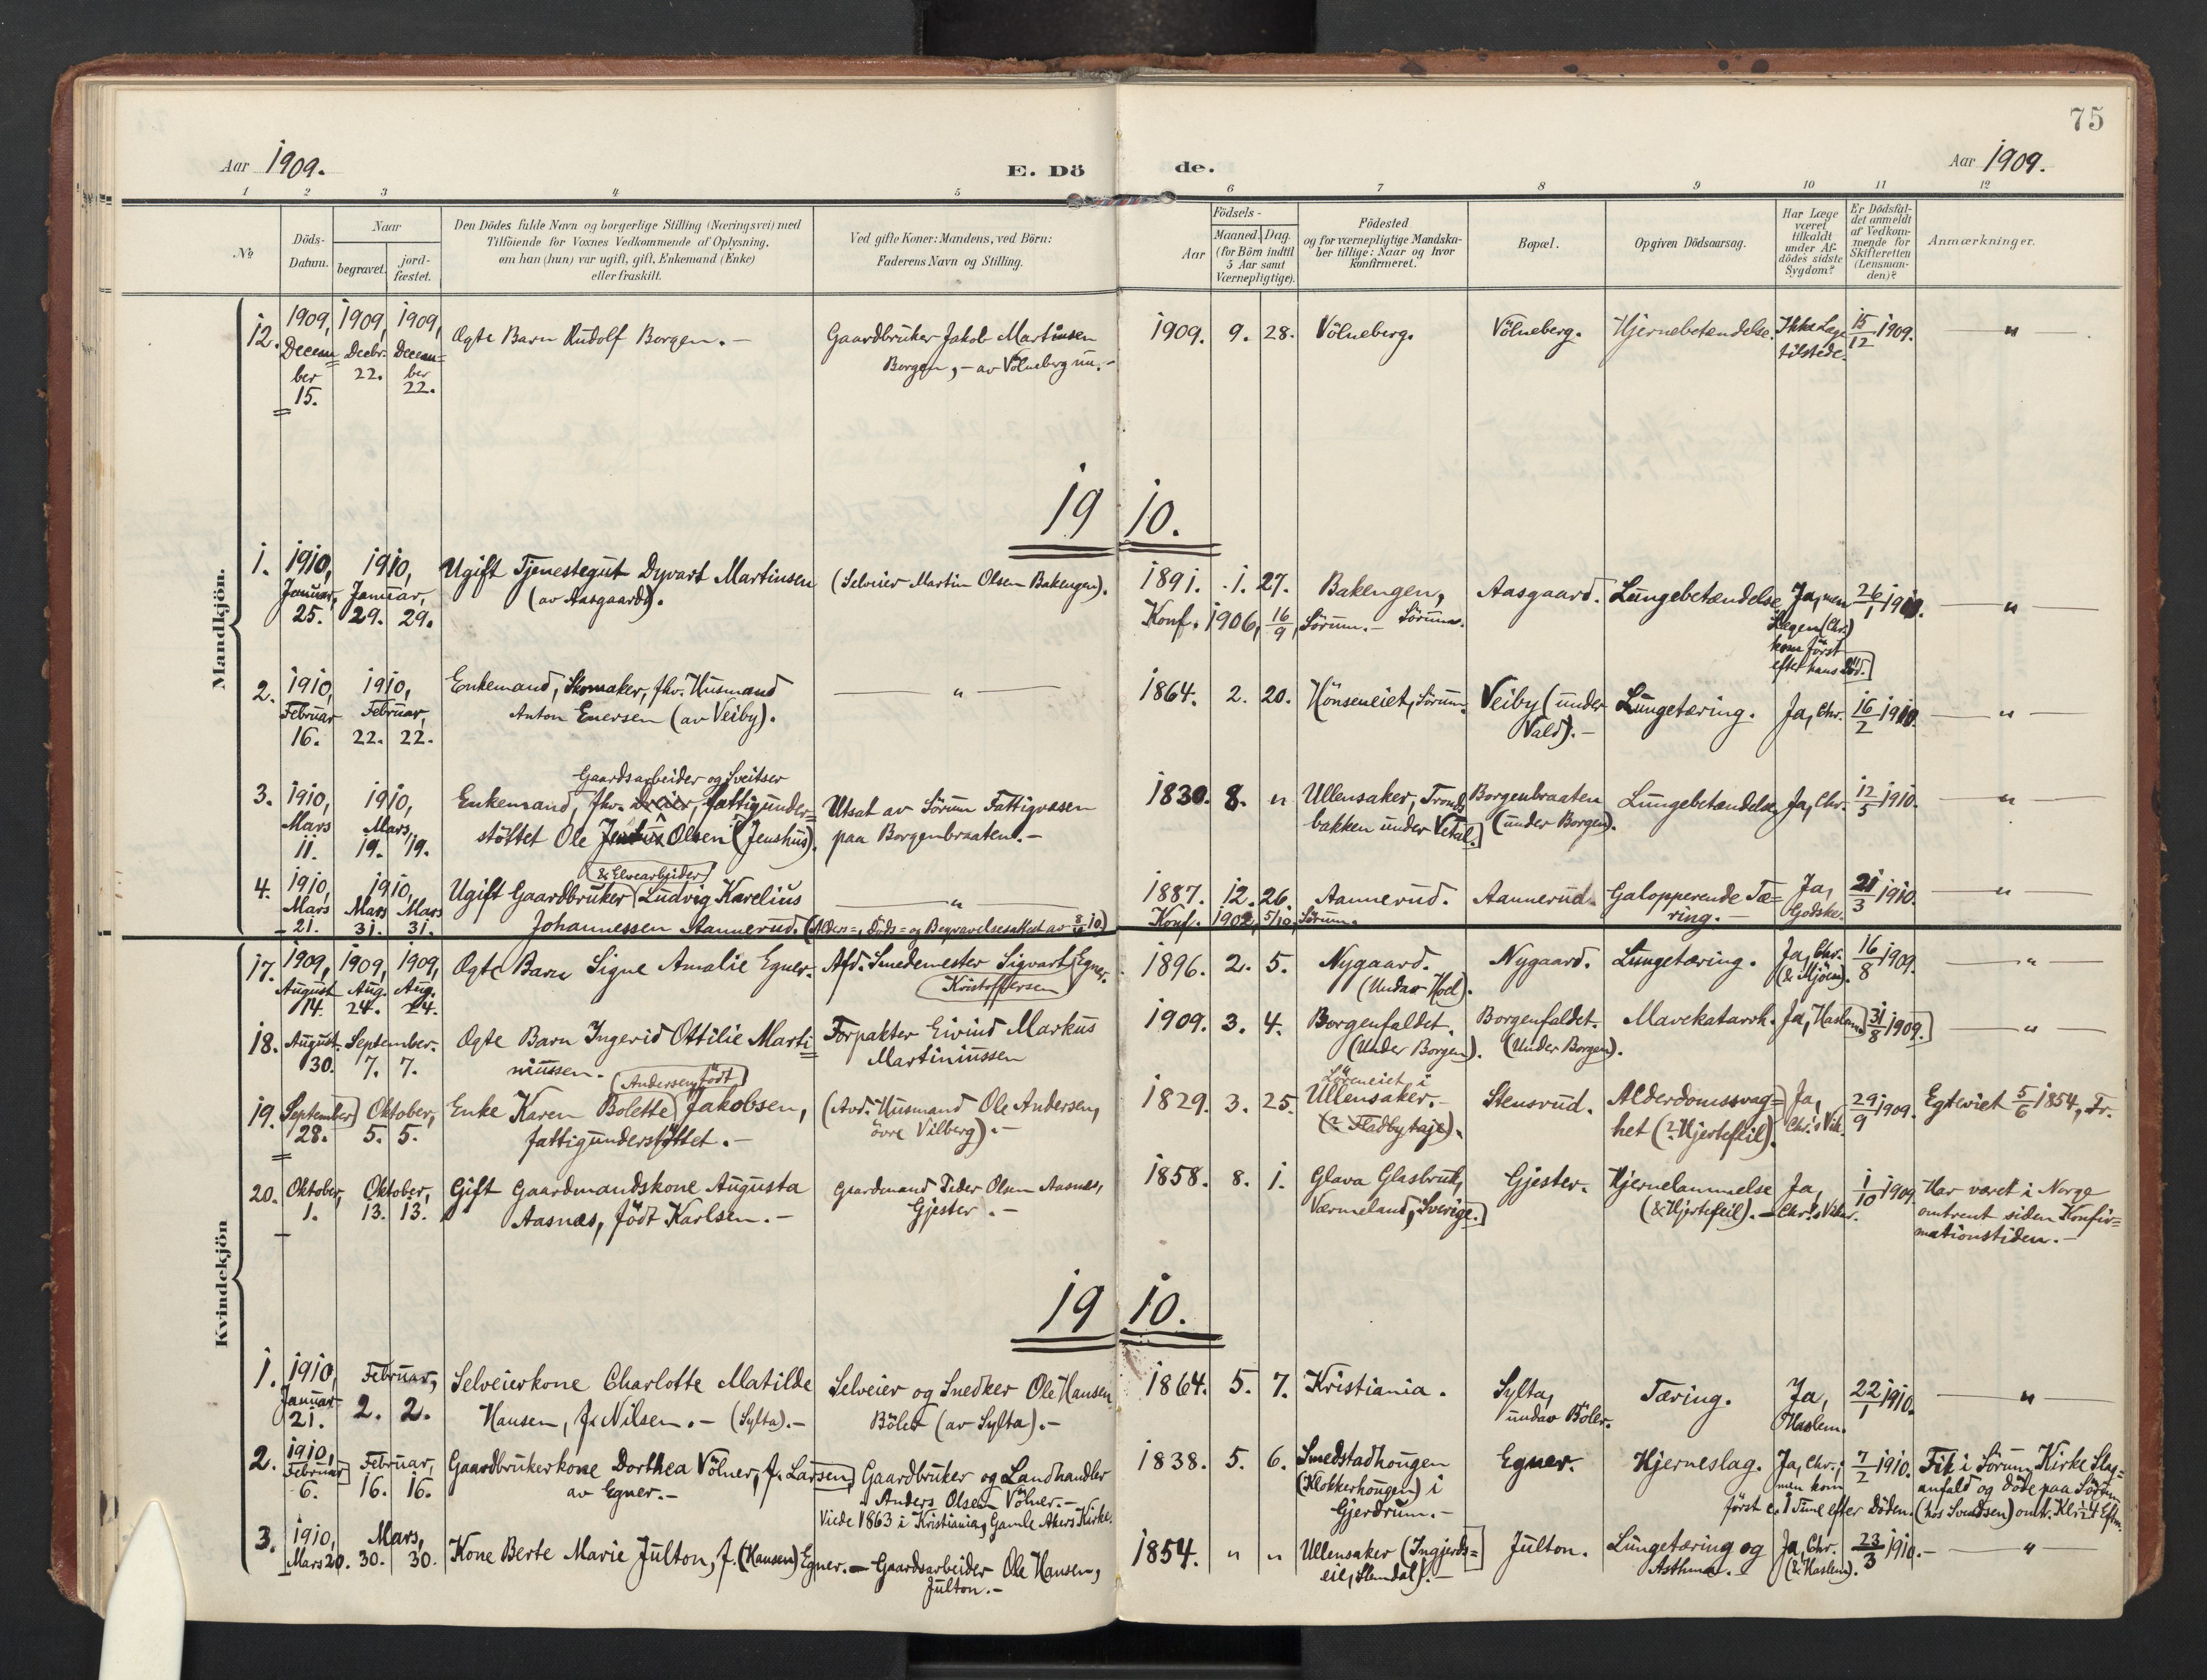 75
Aar 1909.
E. Dö de.
Aar 1909.
1 2 3 4 5 6 7 8 9 10 11 12
No
Döds-Datum.
Naar
begravet.
jord-fæstet.
Den Dödes fulde Navn og borgerlige Stilling (Næringsvei) med
Tilföiende for Voxnes Vedkommende af Oplysning,
om han (hun) var ugift, gift, Enkemand (Enke)
eller fraskilt.
Ved gifte Koner: Mandens, ved Börn:
Faderens Navn og Stilling.
Födsels-
Aar
Maaned. Dag.
(for Börn indtil
5 Aar samt
Værnepligtige).
Födested
og for værnepligtige Mandska-
ber tillige: Naar og hvor
konfirmeret.
Bopæl.
Opgiven Dödsaarsag.
Har Læge
været
tilkaldt
under Af-
dödes sidste
Sygdom?
Er Dödsfal-
det anmeldt
af Vedkom-
mende for
Skifteretten
(Lensman-
den)?
Anmærkninger.
Mandkjön.
12. 1909, 1909, 1909, Ægte Barn Rudolf Borgen.— Gaardbruker Jakob Martinsen 1909. 9. 28. Völneberg. Völneberg. Hjernebetændelse. Ikke Læge 15/12 1909. "
Decem- Decbr. Decem- Borgen, — av Völneberg nu.— tilstede.
ber 22. ber
15. 22.
19 10.
1. 1910, 1910, Ugift Tjenestegut Dyvart Martinsen (Selveier Martin Olsen Bakengen). 1891. 1. 27. Bakengen, Aasgaard. Lungebetændelse Ja, men 26/1 1910. "
Januar, Januar, (av Aasgaard). Konf. 1906, 16/9, Sörum.— Sörum. Lægen (Chr.)
25. 29. 29. kom först
efter hans Död.
2. 1910, 1910, Enkemand, Skomaker, fhv. Husmand " 1864. 2. 20. Hönseneiet, Sörum. Veiby (under Lungetæring. Ja, Chr. 16/2 1910. "
Februar Februar, Anton Enersen (av Veiby). Vald).—
16. 22. 22.
Gaardsarbeider og Sveitser
3. 1910, 1910, Enkemand, fhv. fattigunder= Utsat av Sörum Fattigvæsen 1830. 8. " Ullensaker, Trond- Borgenbraaten Lungebetændelse Ja, Chr. 12/5 1910. "
Mars Mars, stöttet Ole Olsen (Jenshus). paa Borgenbraaten.— bakken under Vetal. (under Borgen).
11. 19. 19.
(& Elvearbeider)
4. 1910, 1910, Ugift Gaardbruker Ludvig Karelius " 1887. 12. 26. Aannerud. Aannerud. Galopperende Tæ= Ja, 21/3 1910. "
Mars Mars Mars Johannessen Aannerud. (Alders=, Döds= og Begravelsesattest av 10) Konf. 1902, 5/10, Sörum. ring.— Godske.
21. 31. 31.
Kvindekjön
17. 1909, 1909, 1909, Ægte Barn Signe Amalie Egner. Afd. Smedemester Sigvart Egner. 1896. 2. 5. Nygaard. Nygaard. Lungetæring. Ja, Chr. 16/8 1909. "
August Aug. Aug. Kristoffersen (Under Hoel). (& Mjöen).
14. 24. 24.
18. August. September. Ægte Barn Ingerid Ottilie Marti= Forpakter Eivind Markus 1909. 3. 4. Borgenfaldet. Borgenfaldet. Mavekatarrh. Ja, Haslem. 31/8 1909. "
30. 7. 7. niussen. Martiniussen (Under Borgen). (Under Borgen).
(Andersen, födt) Löreneiet i
19. September Oktober, Enke Karen Bolette Jakobsen, (Avd. Husmand Ole Andersen, 1829. 3. 25. Ullensaker.— Stensrud. Alderdomssvag= Ja, 29/9 1909. Egteviet 5/6 1854, Fr.
28. 5. 5. fattigunderstöttet.— övre Vilberg).— (? Fladbytajet). het (? Hjertefeil). Chr.s Vik.
20. Oktober, Oktober, Gift Gaardmandskone Augusta Gaardmand Peder Olsen Aasnæs, 1858. 8. 1. Glava Glasbruk, Gjester. Hjernelammelse Ja, 1/10 1909. Har været i Norge
1. 13. 13. Aasnæs, födt Karlsen.— Gjester.— Værmeland, Sverige. (& Hjertefeil).— Chr.s Vikar. omtrent siden Konfir=
mationstiden.—
19 10.
1. 1910, Februar, Selveierkone Charlotte Matilde Selveier og Snedker Ole Hansen 1864. 5. 7. Kristiania. Sylta, Tæring. Ja, 22/1 1910. "
Januar 2. 2. Hansen, f. Nilsen.— (Sylta).— Böler (av Sylta).— under Böler. Haslem.
21.
2. 1910, Februar, Gaardbrukerkone Dorthea Völner, f. Larsen, Gaardbruker og Landhandler 1838. 5. 6. Smedstadhougen Egner. Hjerneslag. Ja, Chr., 7/2 1910. Fik i Sörum Kirke Slag=
Februar 16. 16. av Egner.— Anders Olsen Völner.— (Klokkerhougen) i men kom anfald og döde paa Sörum
6. Viede 1863 i Kristiania, Gamle Akers Kirke. Gjerdrum.— först c. 1 Time efter Döden. (hos Svendsen) omtr. Kl. Eftm.
3. 1910, Mars, Kone Berte Marie Julton, f. (Hansen) Egner.— Gaardsarbeider Ole Hansen, 1854. " " Ullensaker (Ingjerds= Julton. Lungetæring og Ja, Chr. 23/3 1910.— "
Mars 20. 30. 30. Julton.— eie, Slemdal).— Asthma.— (& Haslem).